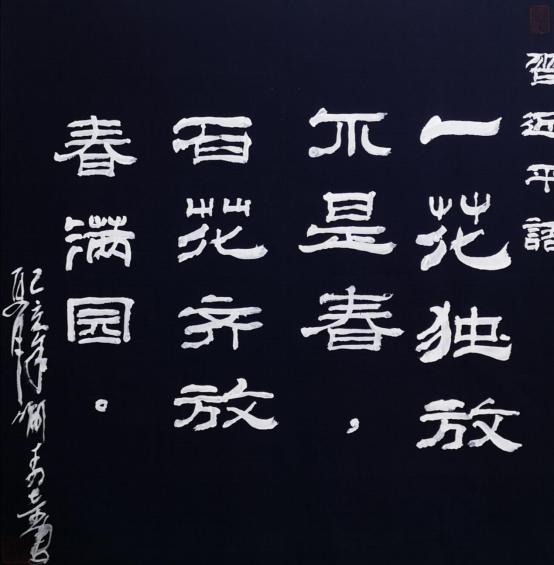 習近平語
一花独放
不是春，
百花齐放
春满园。